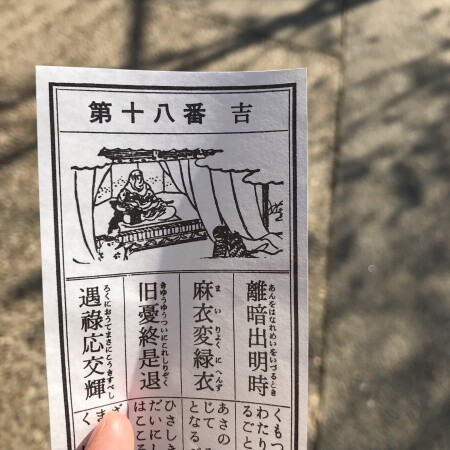 第十八番 吉
離暗出明時
あんをはなれめいをいづるとき
麻衣変緑衣
まいりよくにへんず
旧憂終是退
きゆうゆうついにこれしりぞく
遇祿応交輝
ろくにおうてまさにこうきすべし
くもつ
わたり
るごと
あさの
じて
となる
ひさしき
だいにし
はこころ
ま
く